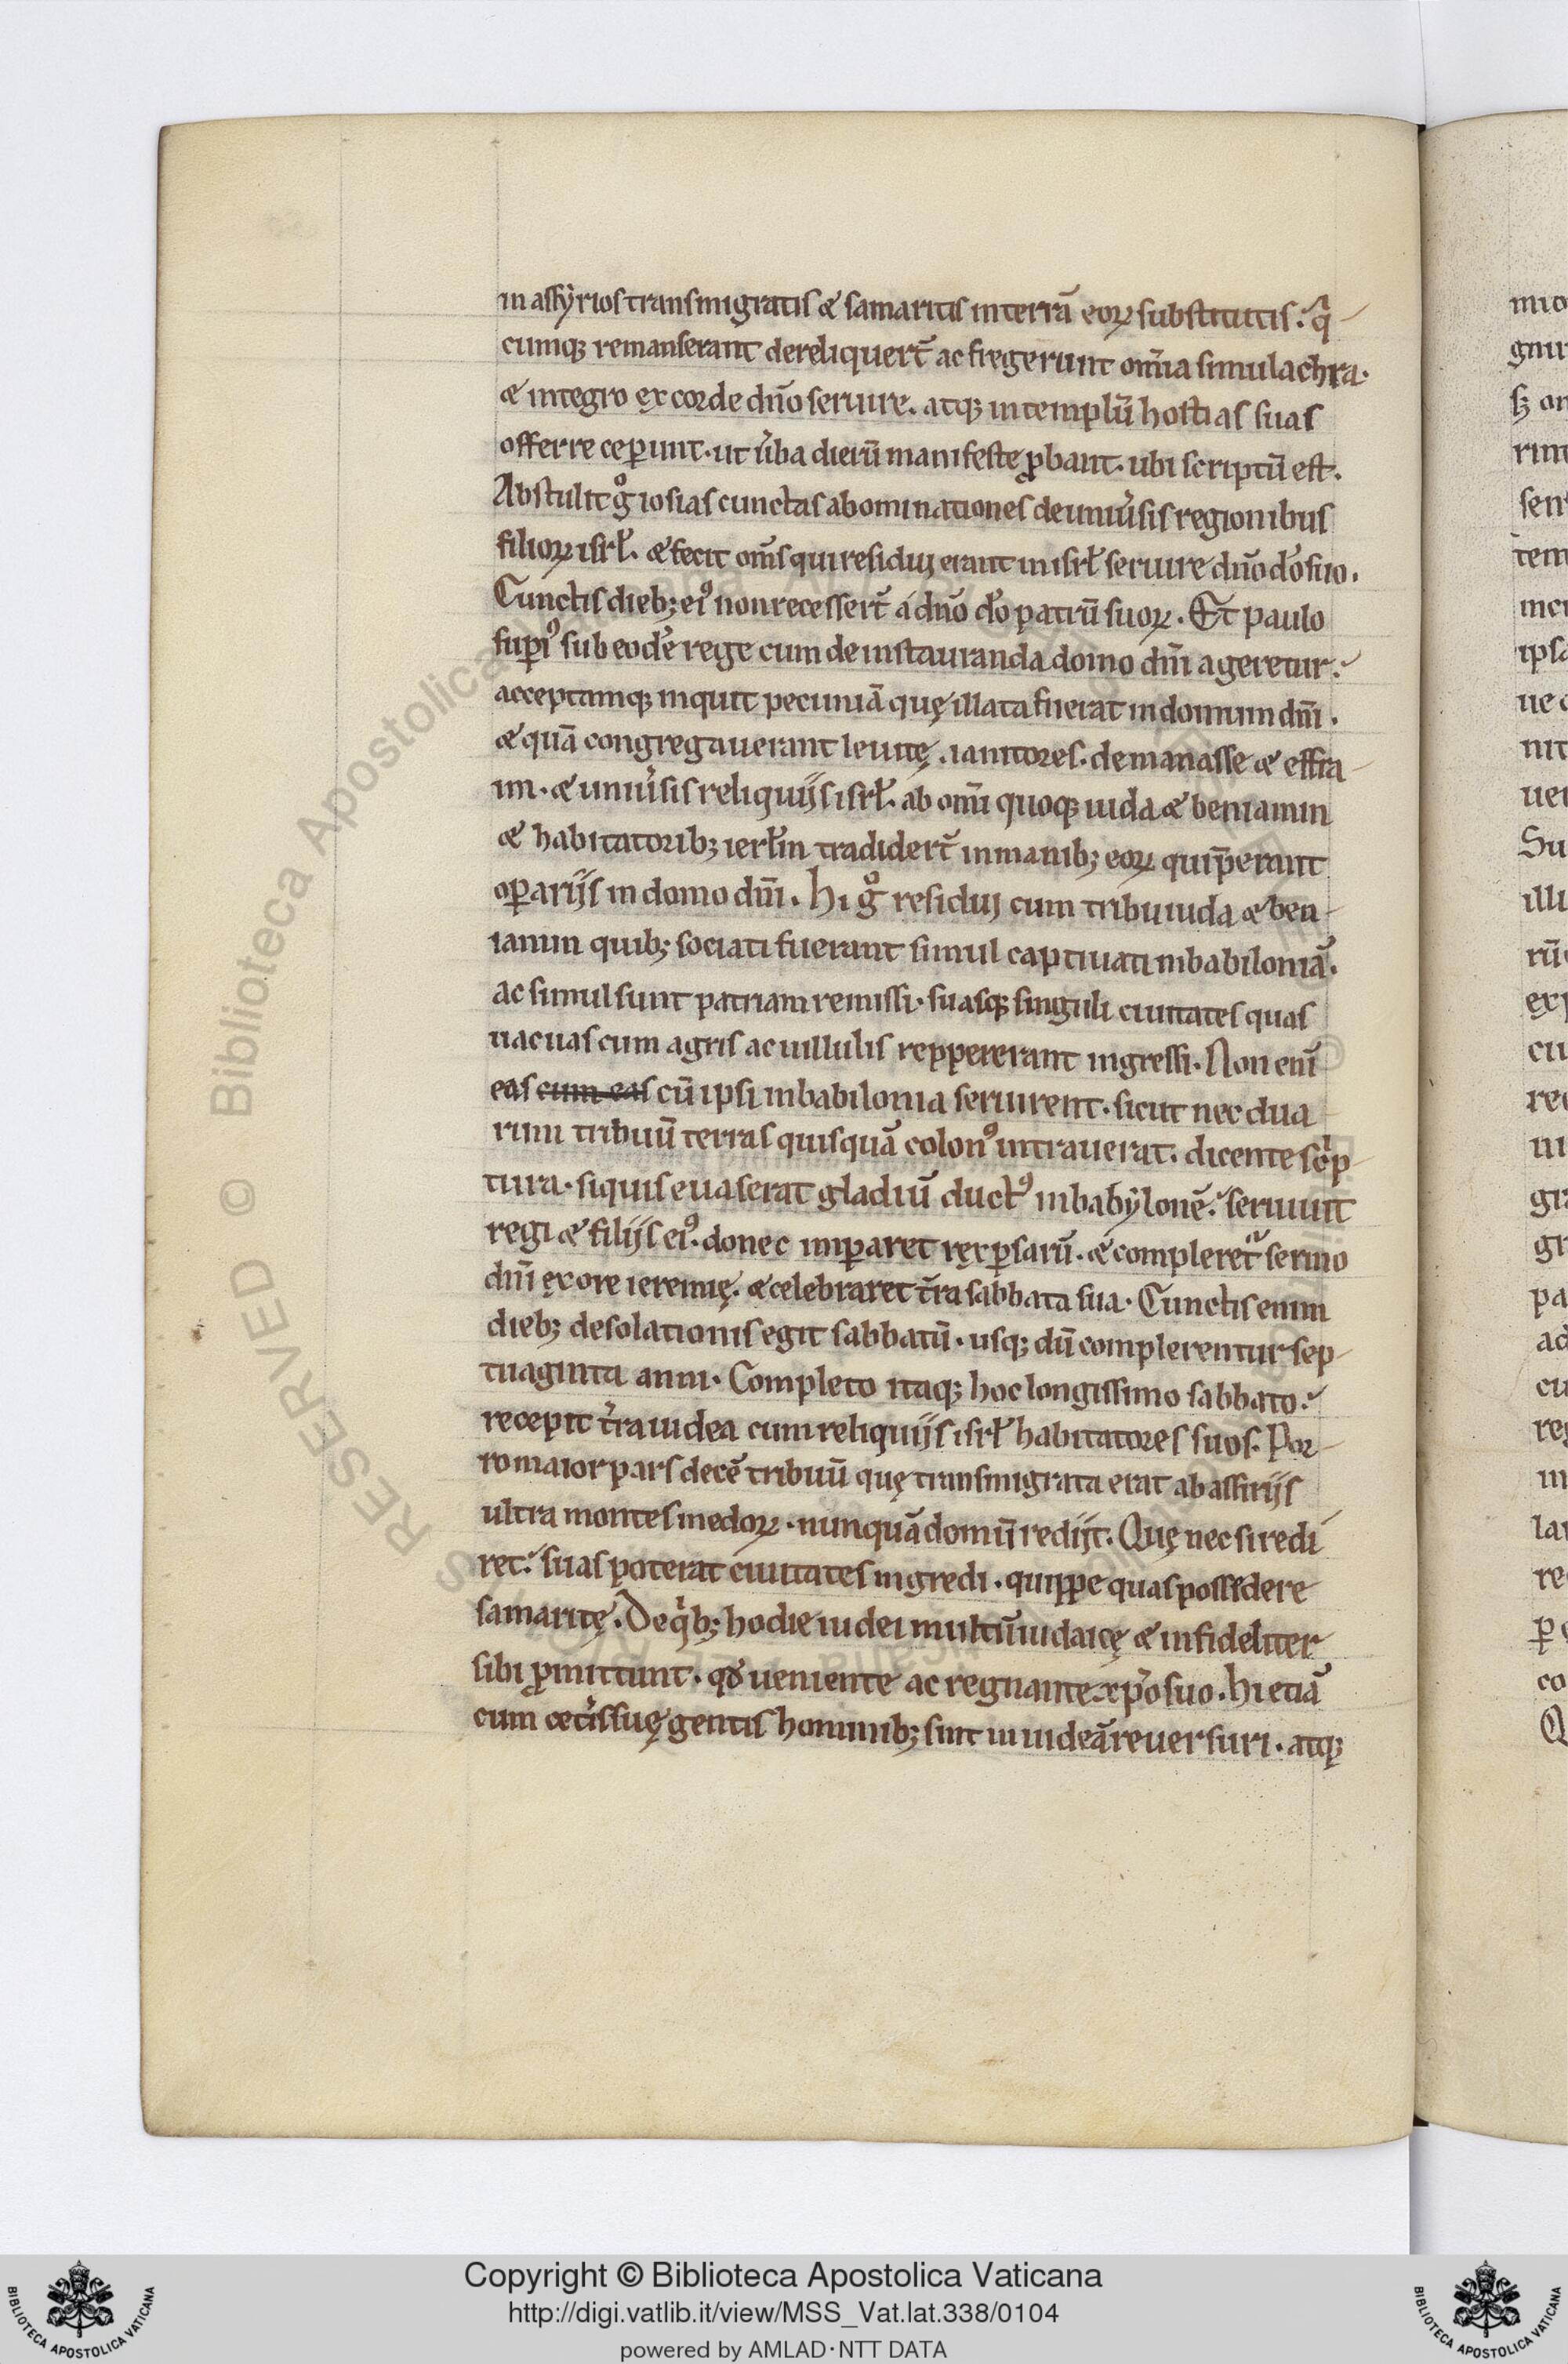 in assẏrios transmigratis & samaritis in terrā eoꝝ substitutis. q
cumq; remanserant dereliquert̄ ac fregerunt om̄ia simulachra.
& integro ex corde dn̄o seruire. atq; in templū hostias suas
offerre ceꝑunt. ut ūba dierū manifeste ꝓbant. ubi scriptū est.
Abstulit gͦ iosias cunctas abominationes de uniūsis regionibus
filioꝝ isrł. & fecit om̄s qui residui erant in isrł seruire dn̄o dō suo.
Cunctis dieb; eiꝰ non recessert̄ a dn̄o dō patrū suoꝝ. Et paulo
suꝑiꝰ sub eodē rege cum de instauranda domo dn̄i ageretur.
acceptamq; inquit pecuniā quę illata fuerat in domum dn̄i.
& quā congregauerant leuitę. ianitores. de manasse & effra
im. & uniūsis reliquijs isrł. ab om̄i quoq; iuda & beniamin
& habitatorib; ierłm tradidert̄ in manib; eoꝝ qui p̄erant
oꝑarijs in domo dn̄i. Hi gͦ residui cum tribu iuda & ben
iamin quib; sociati fuerant simul captiuati in babiloniā.
ac simul sunt patriam remissi. suasq; singuli ciuitates quas
uacuas cum agris ac uillulis reppererant ingressi. Non enī
eas cum eas cū ipsi in babilonia seruirent. sicut nec dua
rum tribuū terras quisquā colonꝰ intrauerat. dicente scͥp
tura. siquis euaserat gladiū ductꝰ in babẏlonē. seruiuit
regi & filijs eiꝰ. donec imꝑaret rex ꝑsarū. & compleret᷑ sermo
dn̄i ex ore ieremię. & celebraret t̄ra sabbata sua. Cunctis enim
dieb; desolationis egit sabbatū. usq; dū complerentur sep
tuaginta anni. Completo itaq; hoc longissimo sabbato.
recepit t̄ra iudea cum reliquijs isrł habitatores suos. Por
ro maior pars decē tribuū quę transmigrata erat ab assirijs
ultra montes medoꝝ. nunquā domū redijt. Quę nec si redi
ret. suas poterat ciuitates ingredi. quippe quas possedere
samaritę. De qͥb; hodie iudei multū iudaicę & infideliter
sibi ꝓmittunt. qđ ueniente ac regnante xp̄o suo. hi etiā
cum cet̄is suę gentis hominib; sint in iudeā reuersuri. atq;
Copyright © Biblioteca Apostolica Vaticana
http://digi.vatlib.it/view/MSS_Vat.lat.338/0104
powered by AMLAD·NTT DATA